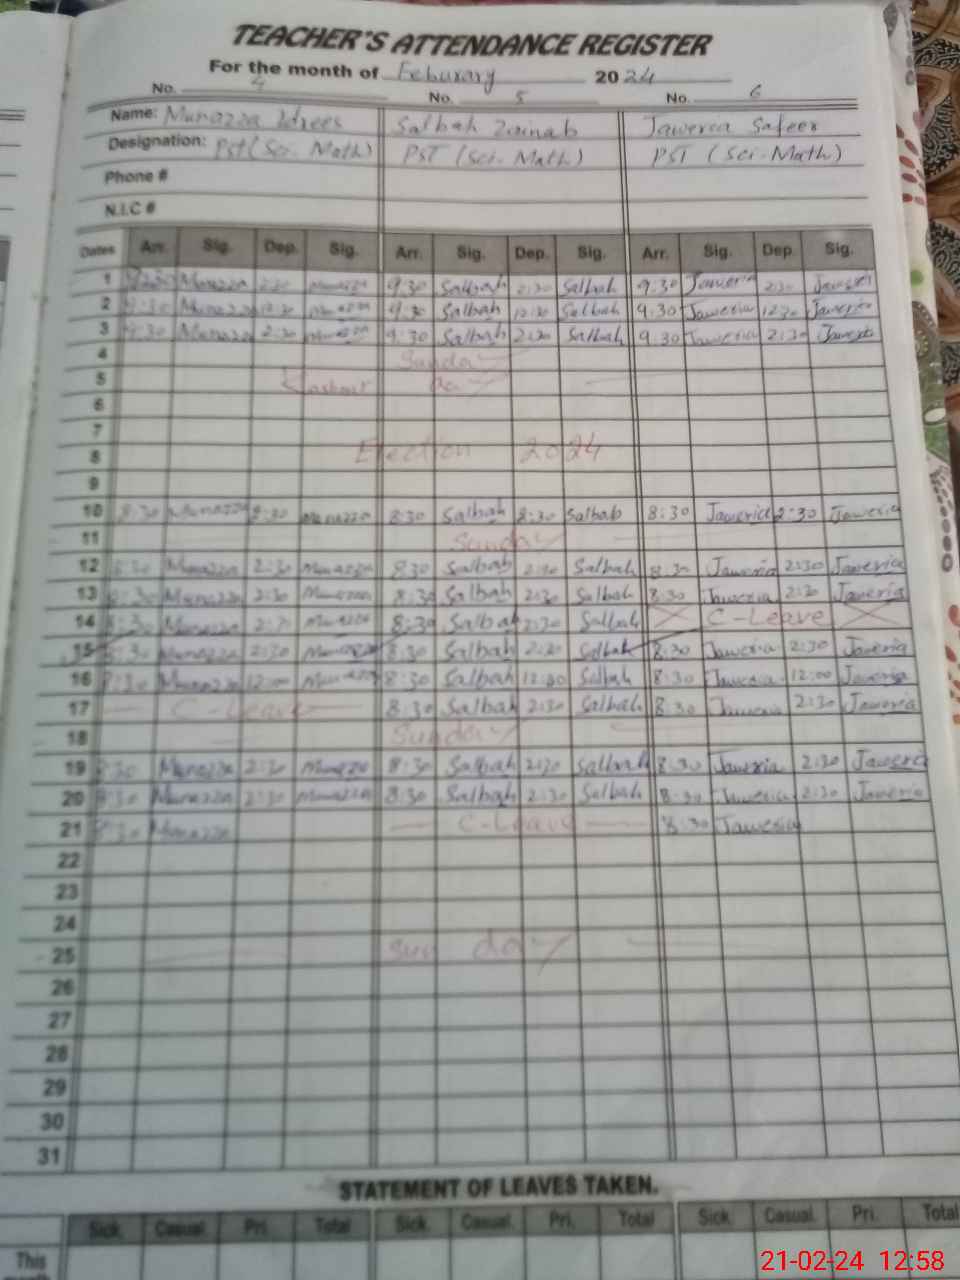 TEACHER'S ATTENDANCE REGISTER
For the month of Feburary 2024
No. 4 No. 5 No. 6
Name: Munazza Idrees Salbah Zainab Jaweria Safeer
Designation: PST (Sci. Math) PST (Sci-Math) PST (Sci-Math)
Phone #
N.I.C #
Dates Arr. Sig. Dep. Sig. Arr. Sig. Dep. Sig. Arr. Sig. Dep. Sig.
1 Munazza 2:30 Munazza 9:30 Salbah 2:30 Salbah 9:30 Jaweria 2:30 Jaweria
2 9:30 Munazza 12:30 Munazza 9:30 Salbah 12:30 Salbah 9:30 Jaweria 12:30 Jaweria
3 9:30 Munazza 2:30 Munazza 9:30 Salbah 2:30 Salbah 9.30 Jaweria 2:30 Jaweria
4 Sunday
5 Kashmir day
6
7
8 Election 2024
9
10 8:30 Munazza 2:30 Munazza 8:30 Salbah 8:30 Salbah 8:30 Jaweria 2:30 Jaweria
11 Sunday
12 8:30 Munazza 2:30 Munazza 8:30 Salbah 2:30 Salbah 8:30 Jaweria 2:30 Jaweria
13 8:30 Munazza 2:30 Munazza 8:30 Salbah 2:30 Salbah 8:30 Jaweria 2:30 Jaweria
14 8:30 Munazza 2:30 Munazza 8:30 Salbah 2:30 Salbah C-Leave
15 8:30 Munazza 2:30 Munazza 8:30 Salbah 2:30 Salbah 8:30 Jaweria 2:30 Jaweria
16 8:30 Munazza 12:00 Munazza 8:30 Salbah 12:00 Salbah 8:30 Jaweria 12:00 Jaweria
17 C-Leave 8:30 Salbah 2:30 Salbah 8:30 Jaweria 2:30 Jaweria
18 Sunday
19 8:30 Munazza 2:30 Munazza 8:30 Salbah 2:30 Salbah 8:30 Jaweria 2:30 Jaweria
20 8:30 Munazza 2:30 Munazza 8:30 Salbah 2:30 Salbah 8:30 Jaweria 2:30 Jaweria
21 8:30 Munazza C-Leave 8:30 Jaweria
22
23
24
25 Sunday
26
27
28
29
30
31
STATEMENT OF LEAVES TAKEN.
Sick. Casual. Pri. Total Sick. Casual. Pri. Total Sick. Casual. Pri. Total
This
month
21-02-24 12:58